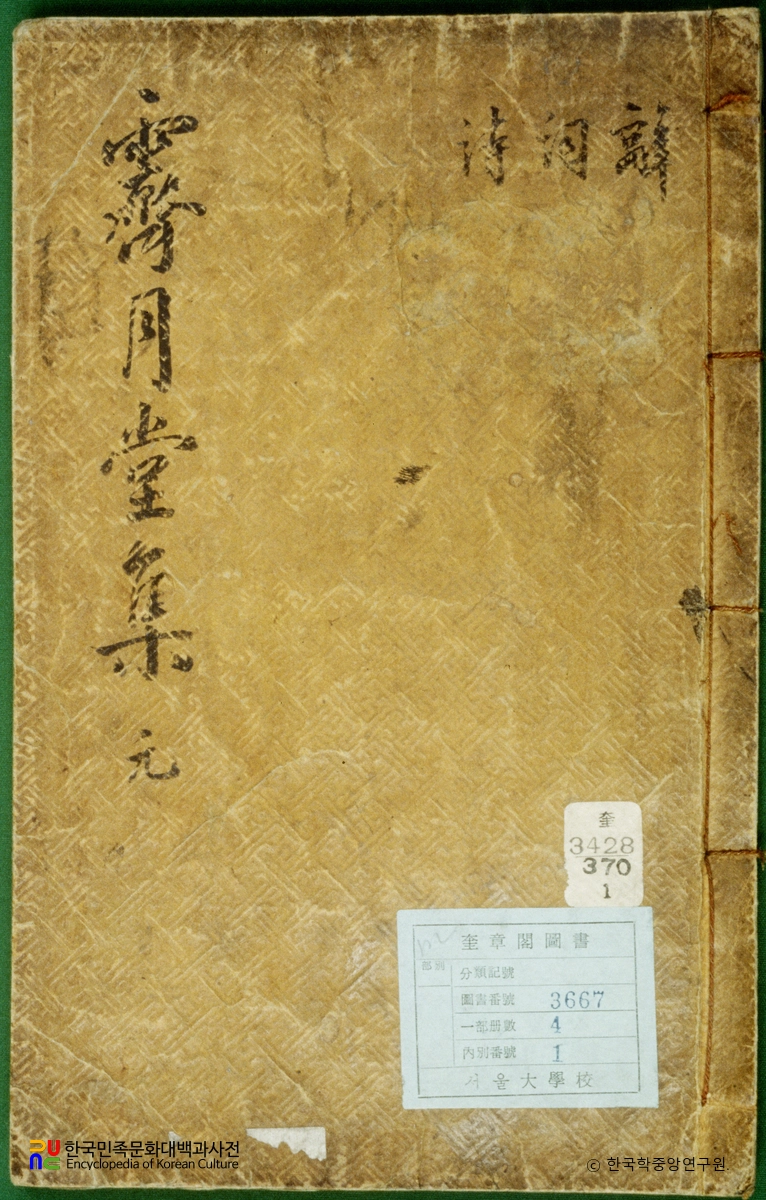 詞 詩
霽月堂集 元
奎
3428
370
1
奎章閣圖書
部別
分類記號
圖書番號 3667
一部册數 4
內別番號 1
서울大學校
한국민족문화대백과사전
Encyclopedia of Korean Culture
© 한국학중앙연구원